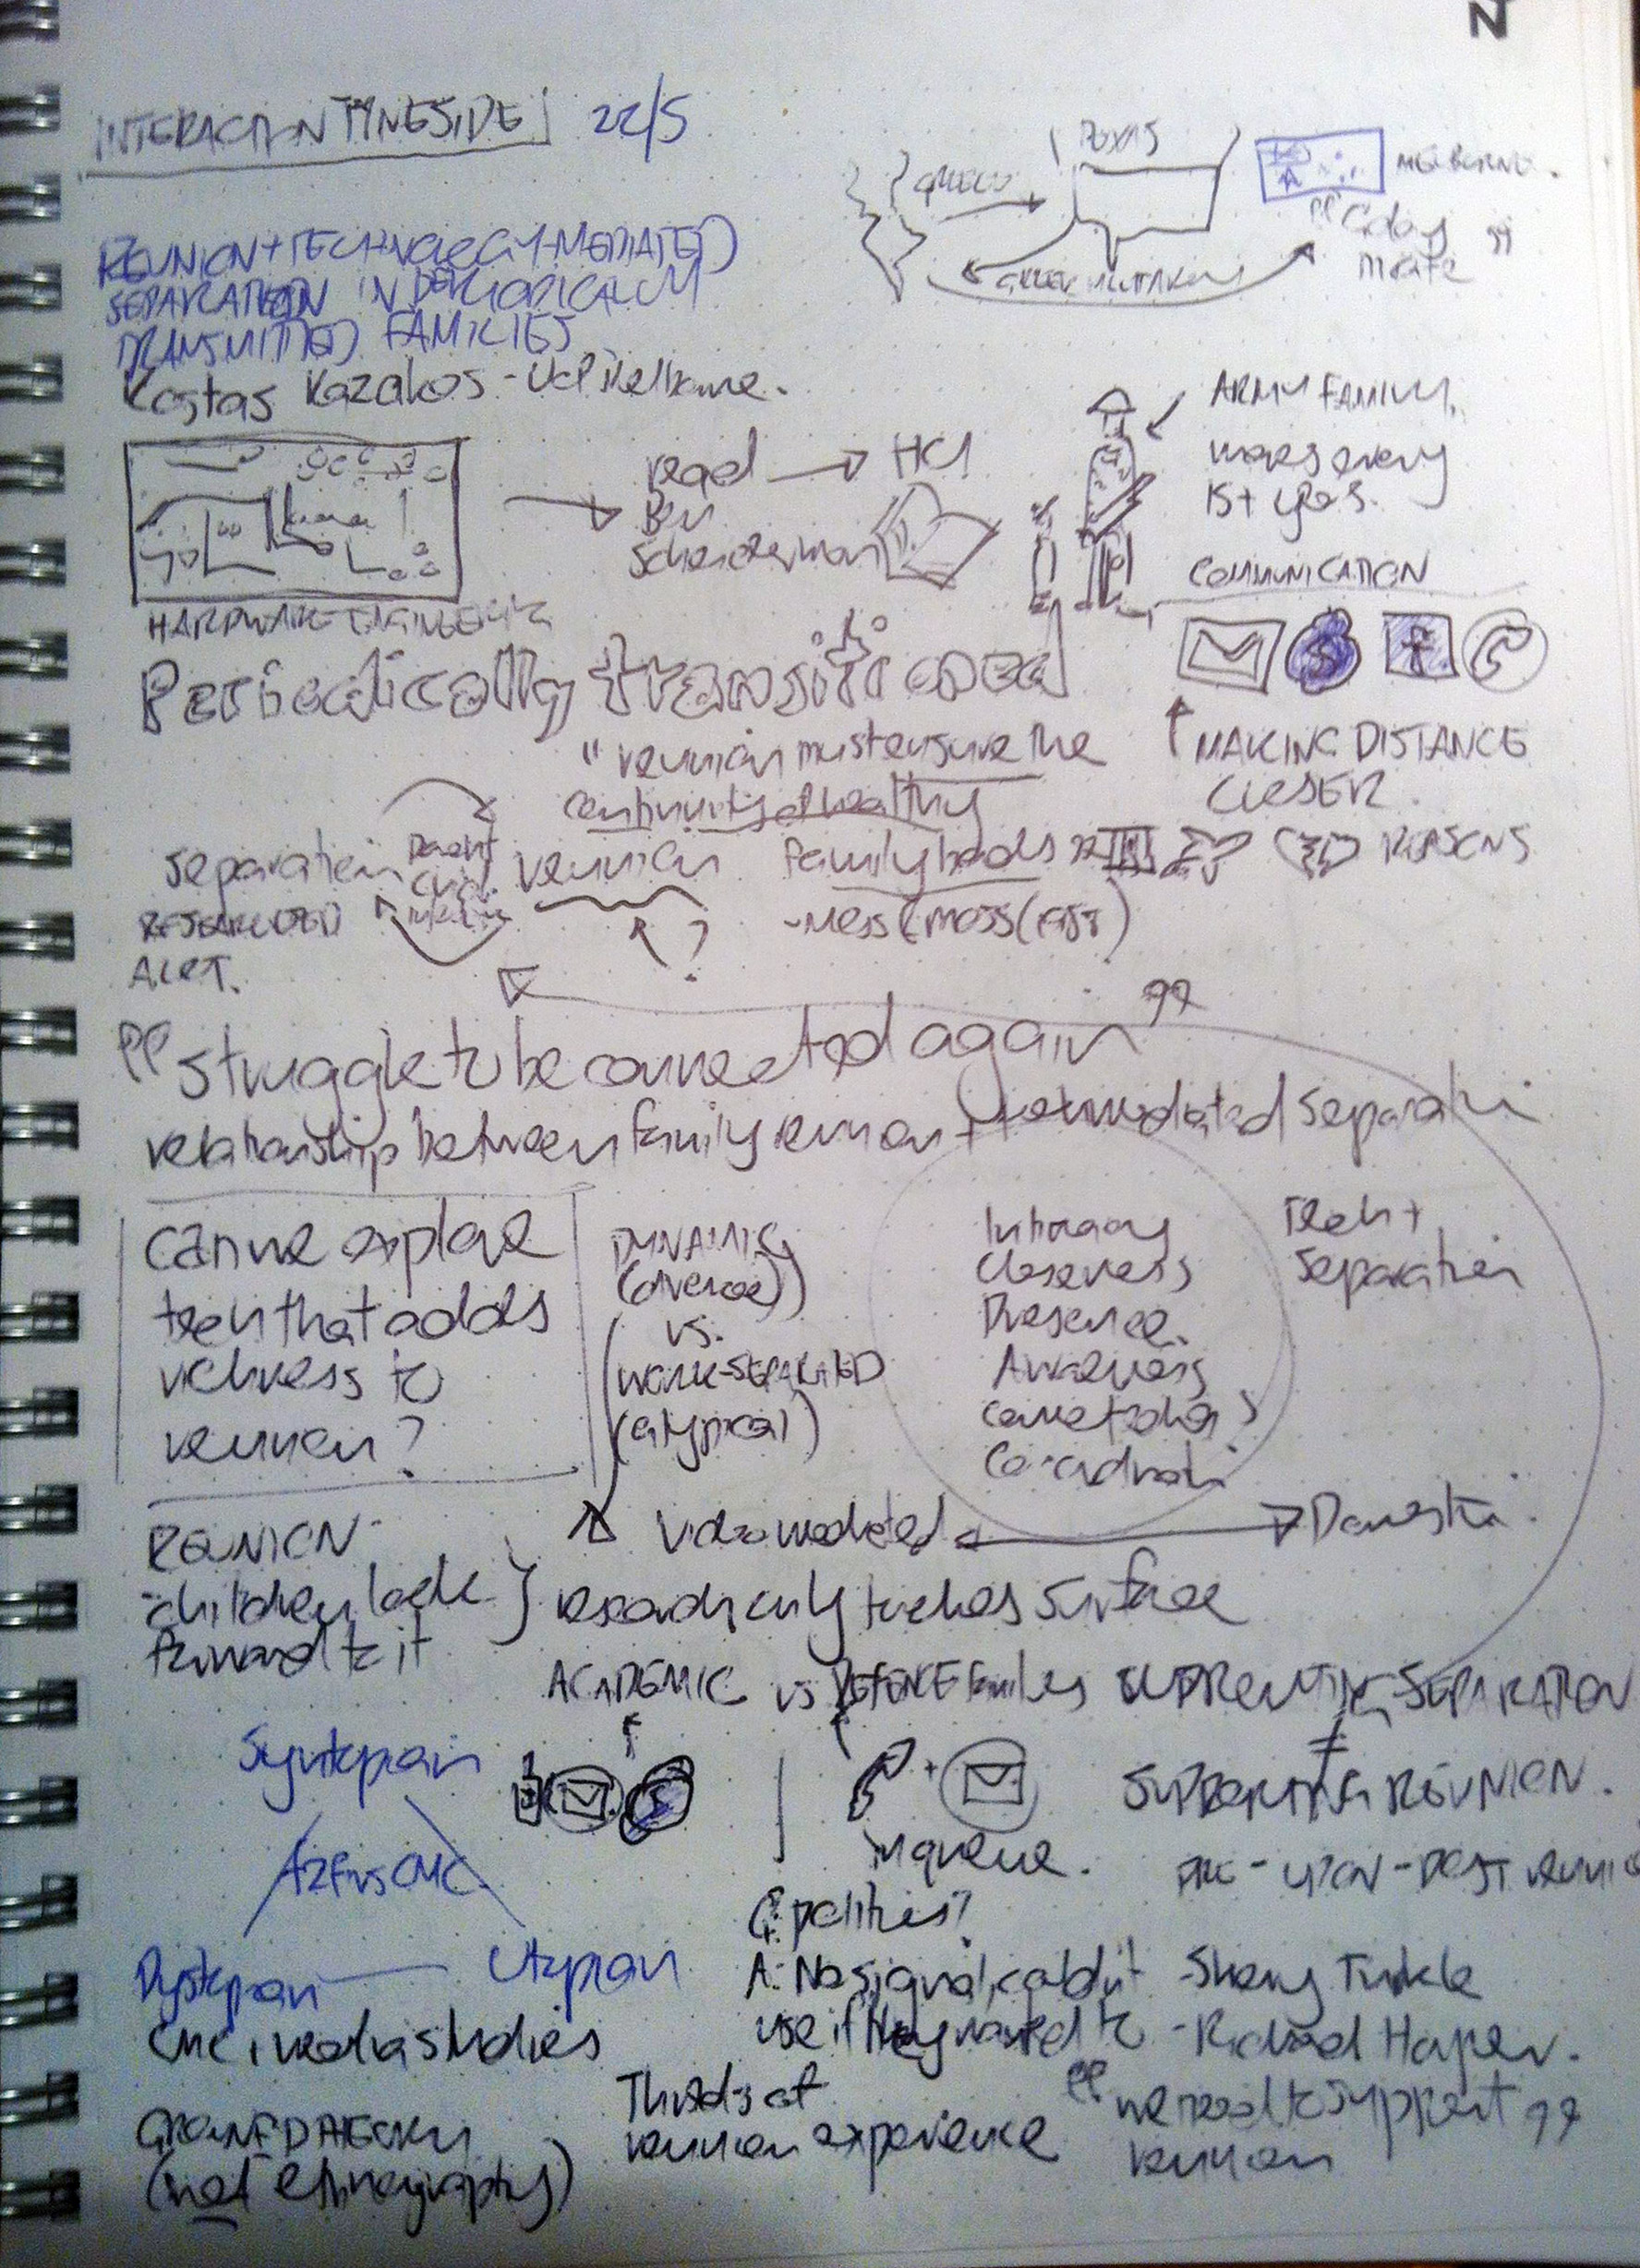 N
INTERACTION TYNESIDE 22/5
REUNION + TECHNOLOGY-MEDIATED
SEPARATION IN PERIODICALLY
FAMILIES
Kostas Kazakos -
GREECE
TEXAS
MELBOURNE.
"G'day
mate"
GREEK MILITARY
HARDWARE ENGINEER
read → HCI
Ben
ARMY FAMILY.
moves every
yrs.
COMMUNICATION
MAKING DISTANCE
CLOSER.
REASONS
Periodically transitioned
"reunion must ensure the
continuity of healthy
family bonds"
separation
parent
child
reunion
RESEARCHED
ALOT.
?
"struggle to be connected again"
relationship between family reunion + separation
can we explore
tech that adds
richness to
reunion?
DYNAMIC
(divorce)
vs.
WORK-SEPARATED
(atypical)
Intimacy
Closeness
Presence.
Awareness
Connectedness
Co-ordination
Tech +
separation
Video mediated
Domestic.
REUNION
- children look
forward to it
research only touches surface
ACADEMIC vs DEFENCE families
in queue.
SUPPORTING SEPARATION
≠
SUPPORTING REUNION.
PRE - UPON - POST reunion
Syntopian
F2F vs CMC
Dystopian
Utopian
CMC, media studies
GROUNDED THEORY
(not ethnography)
Q: politics?
A: No signal, couldn't
use if they wanted to
Threads of
reunion experience
- Sherry Turkle
- Richard Harper.
"we need to support
reunion"